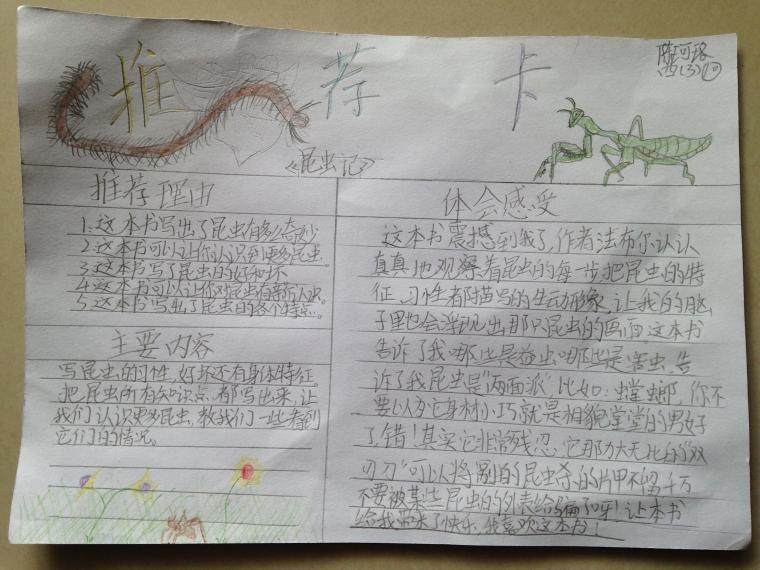 推荐卡
陈珂珞
四(3)
《昆虫记》
推荐理由
1.这本书写出了昆虫有多么奇妙
2.这本书可以让你认识到更多昆虫.
3.这本书写了昆虫的好和坏
4.这本书可以让你对昆虫有新认识.
5.这本书写出了昆虫的各个特点。
主要内容
写昆虫的习性,好坏还有身体特征。
把昆虫所有知识点,都写出来,让
我们认识更多昆虫,教我们一些看到
它们的情况。
体会感受
这本书震撼到我了,作者法布尔认认
真真地观察着昆虫的每一步,把昆虫的特
征、习性者描写的生动形象,让我的脑
子里也会浮现出那只昆虫的画面,这本书
告诉了我哪些是益虫哪些是害虫,告
诉了我昆虫是"两面派"比如:螳螂,你不
要以为它身材小巧就是相貌堂堂的男好
了,错!其实它非常残忍,它那力大无比的"双
刃刀"可以将别的昆虫杀的片甲不留,千万
不要被某些昆虫的外表给骗了呀!让本书
给我带来了快乐,我喜欢这本书!